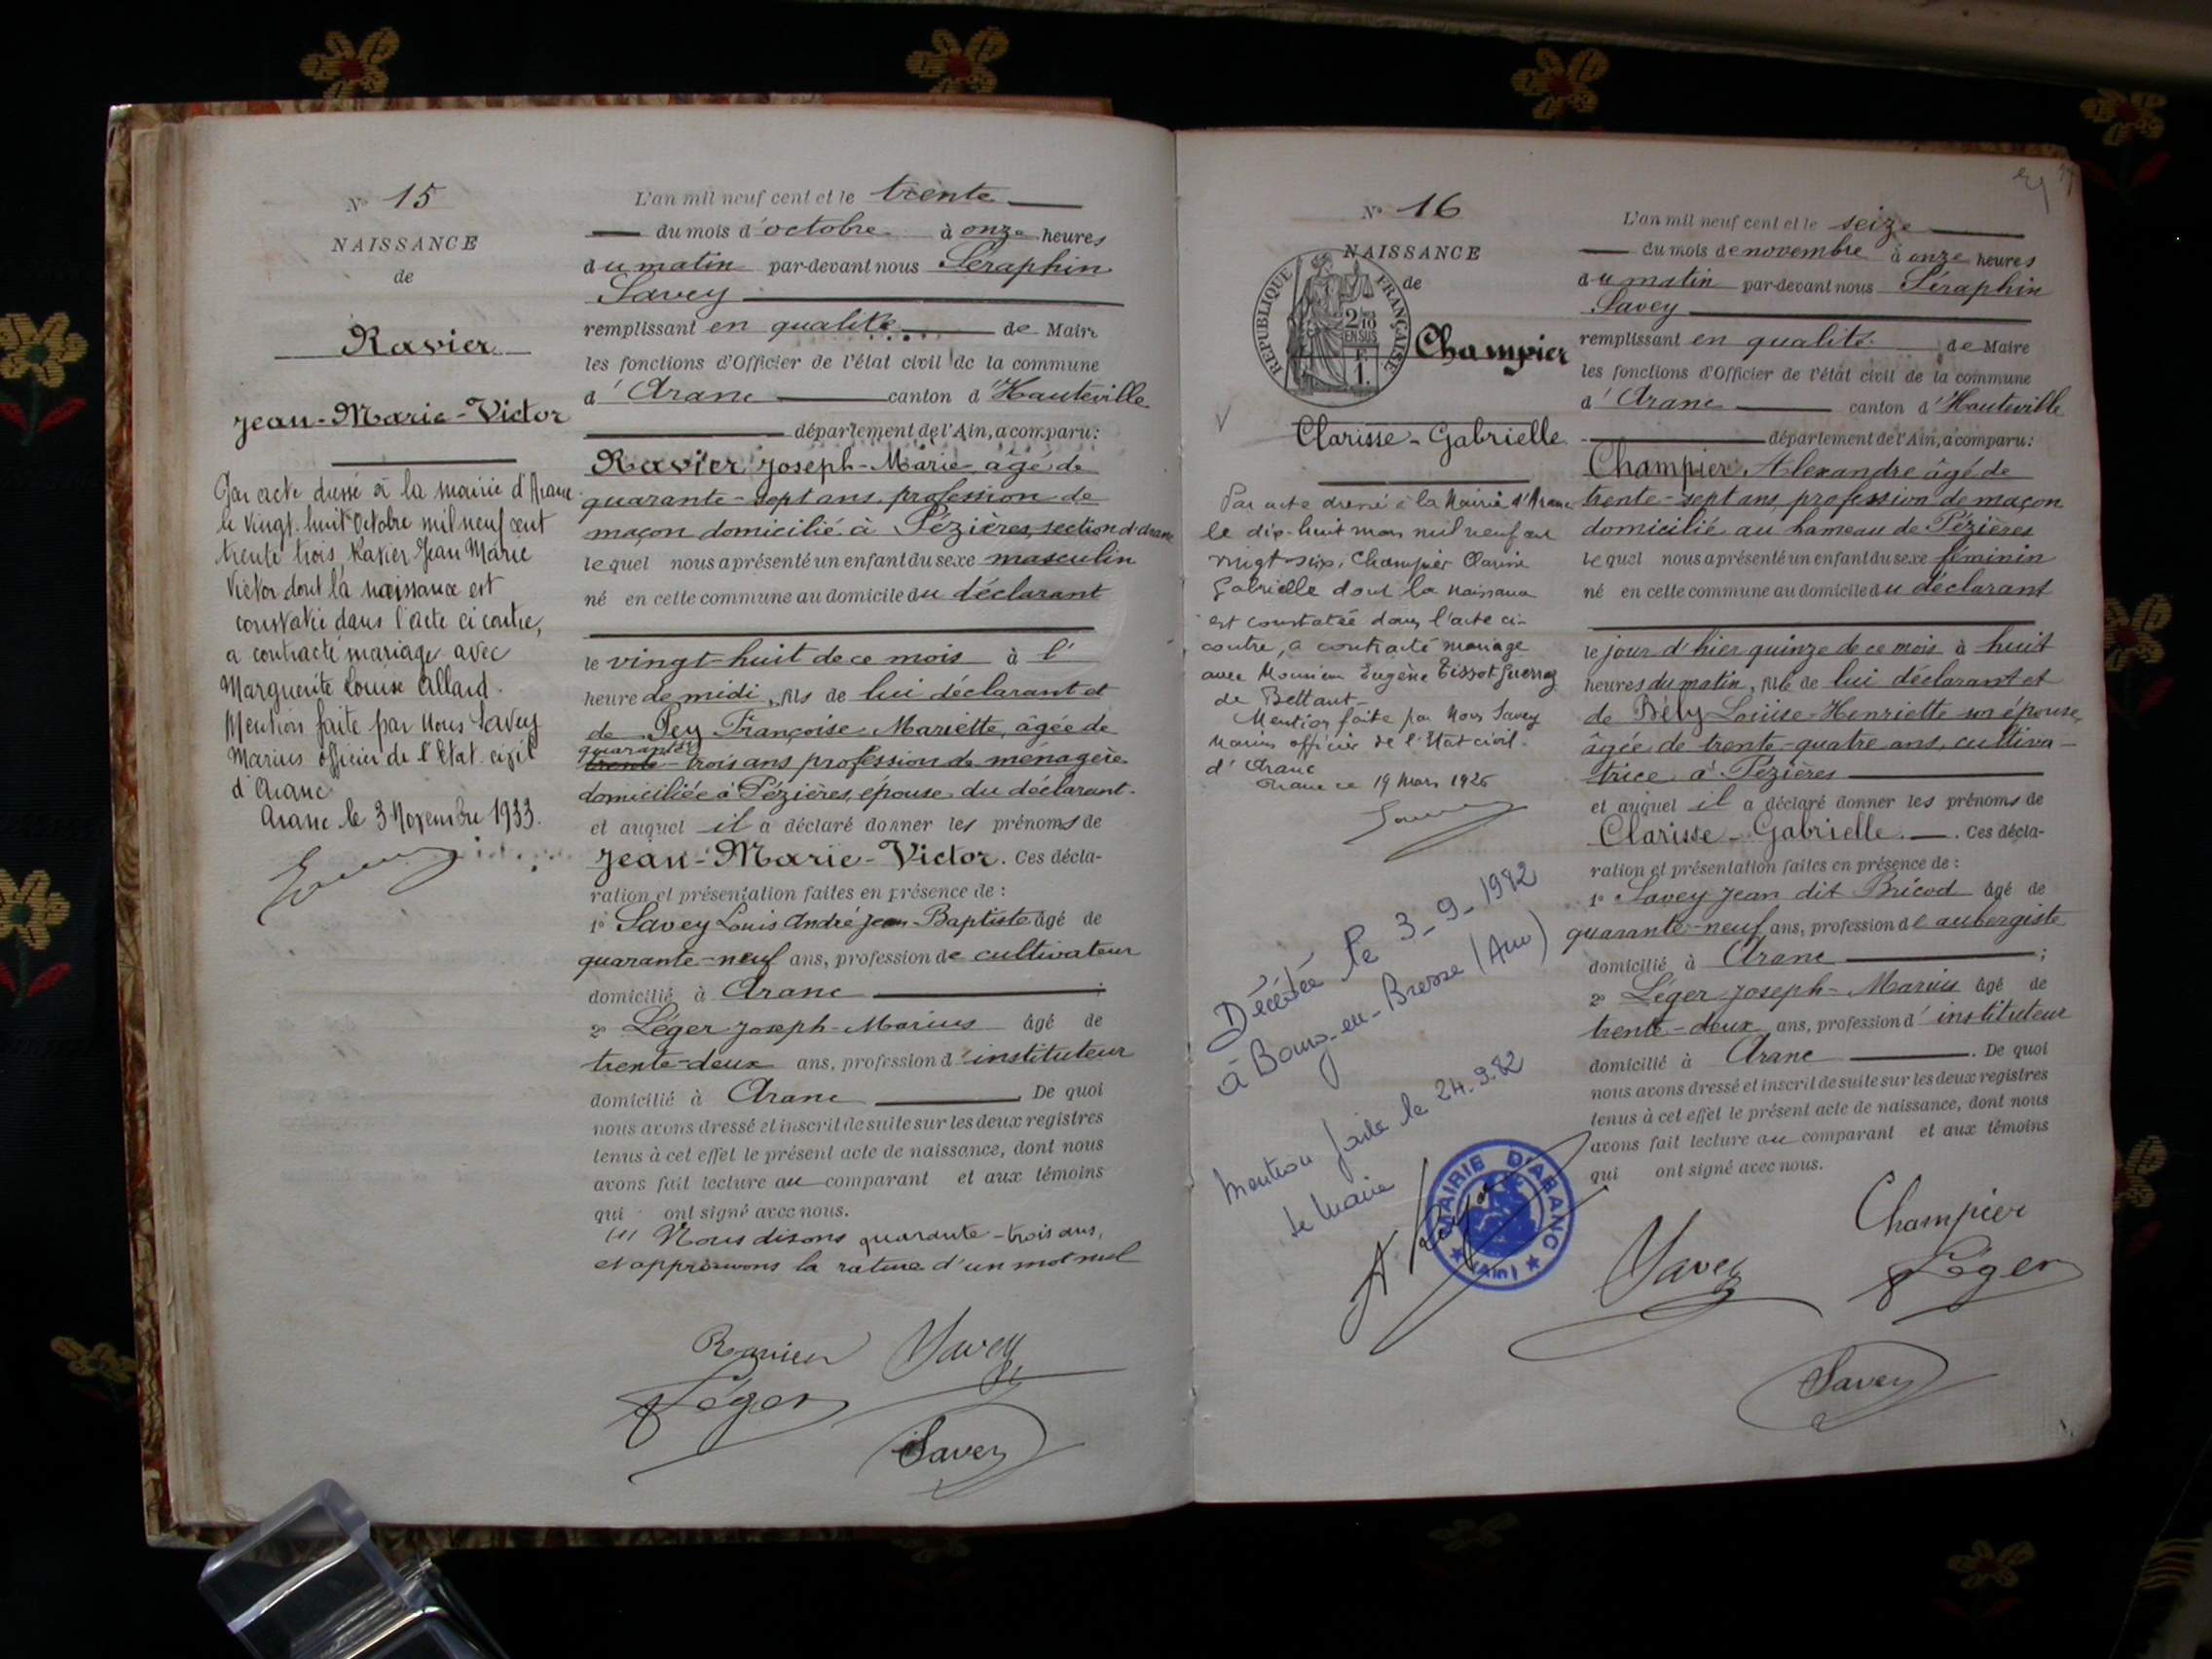 N° 15
NAISSANCE
de
Ravier
Jean-Marie-Victor
Par acte dressé à la mairie d'Aranc
le vingt-huit Octobre mil neuf cent
trente trois, Ravier Jean Marie
Victor dont la naissance est
constatée dans l'acte ci contre,
a contracté mariage avec
Marguerite Louise Allard.
Mention faite par Nous Savey
Marius officier de l'Etat civil
d'Aranc
Aranc le 3 Novembre 1933.
L'an mil neuf cent et le trente
du mois d'octobre à onze heures
du matin par-devant nous Séraphin
Savey
remplissant en qualité de Maire
les fonctions d'Officier de l'état civil de la commune
d'Aranc canton d'Hauteville
département de l'Ain, a comparu:
Ravier Joseph-Marie âgé de
quarante-sept ans, profession de
maçon domicilié à Pézières, section d'Aranc
lequel nous a présenté un enfant du sexe masculin
né en cette commune au domicile du déclarant
le vingt-huit de ce mois à l'
heure de midi, fils de lui déclarant et
de Pey Françoise-Mariette, âgée de
quarante (1)
trente-trois ans profession de ménagère
domiciliée à Pézières, épouse du déclarant.
et auquel il a déclaré donner les prénoms de
Jean-Marie-Victor. Ces décla-
ration et présentation faites en présence de :
1° Savey Louis André Jean-Baptiste âgé de
quarante-neuf ans, profession de cultivateur
domicilié à Aranc ;
2° Léger Joseph-Marius âgé de
trente-deux ans, profession d'instituteur
domicilié à Aranc . De quoi
nous avons dressé et inscrit de suite sur les deux registres
tenus à cet effet le présent acte de naissance, dont nous
avons fait lecture au comparant et aux témoins
qui ont signé avec nous.
(1) Nous disons quarante-trois ans,
et approuvons la rature d'un mot nul
Ravier Savey
Léger
Savey
N° 16
NAISSANCE
de
REPUBLIQUE FRANÇAISE
2/10
EN SUS
F.
1.
Champier
Clarisse-Gabrielle
Par acte dressé à la Mairie d'Aranc
le dix-huit mars mil neuf cent
vingt-six, Champier Clarisse
Gabrielle dont la naissance
est constatée dans l'acte ci-
contre, a contracté mariage
avec Monsieur Eugène Tissot Guerraz
de Bettant-
Mention faite par Nous Savey
Marius officier de l'Etat civil.
d'Aranc
Aranc ce 19 Mars 1926
Décédée le 3-9-1982
à Bourg-en-Bresse (Ain)
Mention faite le 24.9.82
le Maire
MAIRIE D'ARANC
(AIN)
L'an mil neuf cent et le seize
du mois de novembre à onze heures
du matin par-devant nous Séraphin
Savey
remplissant en qualité de Maire
les fonctions d'Officier de l'état civil de la commune
d'Aranc canton d'Hauteville
département de l'Ain, a comparu:
Champier Alexandre âgé de
trente-sept ans, profession de maçon
domicilié au hameau de Pézières
lequel nous a présenté un enfant du sexe féminin
né en cette commune au domicile du déclarant
le jour d'hier quinze de ce mois à huit
heures du matin, fille de lui déclarant et
de Bély Louise-Henriette son épouse,
âgée de trente-quatre ans, cultiva-
trice à Pézières
et auquel il a déclaré donner les prénoms de
Clarisse-Gabrielle . Ces décla-
ration et présentation faites en présence de :
1° Savey Jean dit Bricod âgé de
quarante-neuf ans, profession de aubergiste
domicilié à Aranc ;
2° Léger Joseph-Marius âgé de
trente-deux ans, profession d'instituteur
domicilié à Aranc . De quoi
nous avons dressé et inscrit de suite sur les deux registres
tenus à cet effet le présent acte de naissance, dont nous
avons fait lecture au comparant et aux témoins
qui ont signé avec nous.
Champier
Savey Léger
Savey